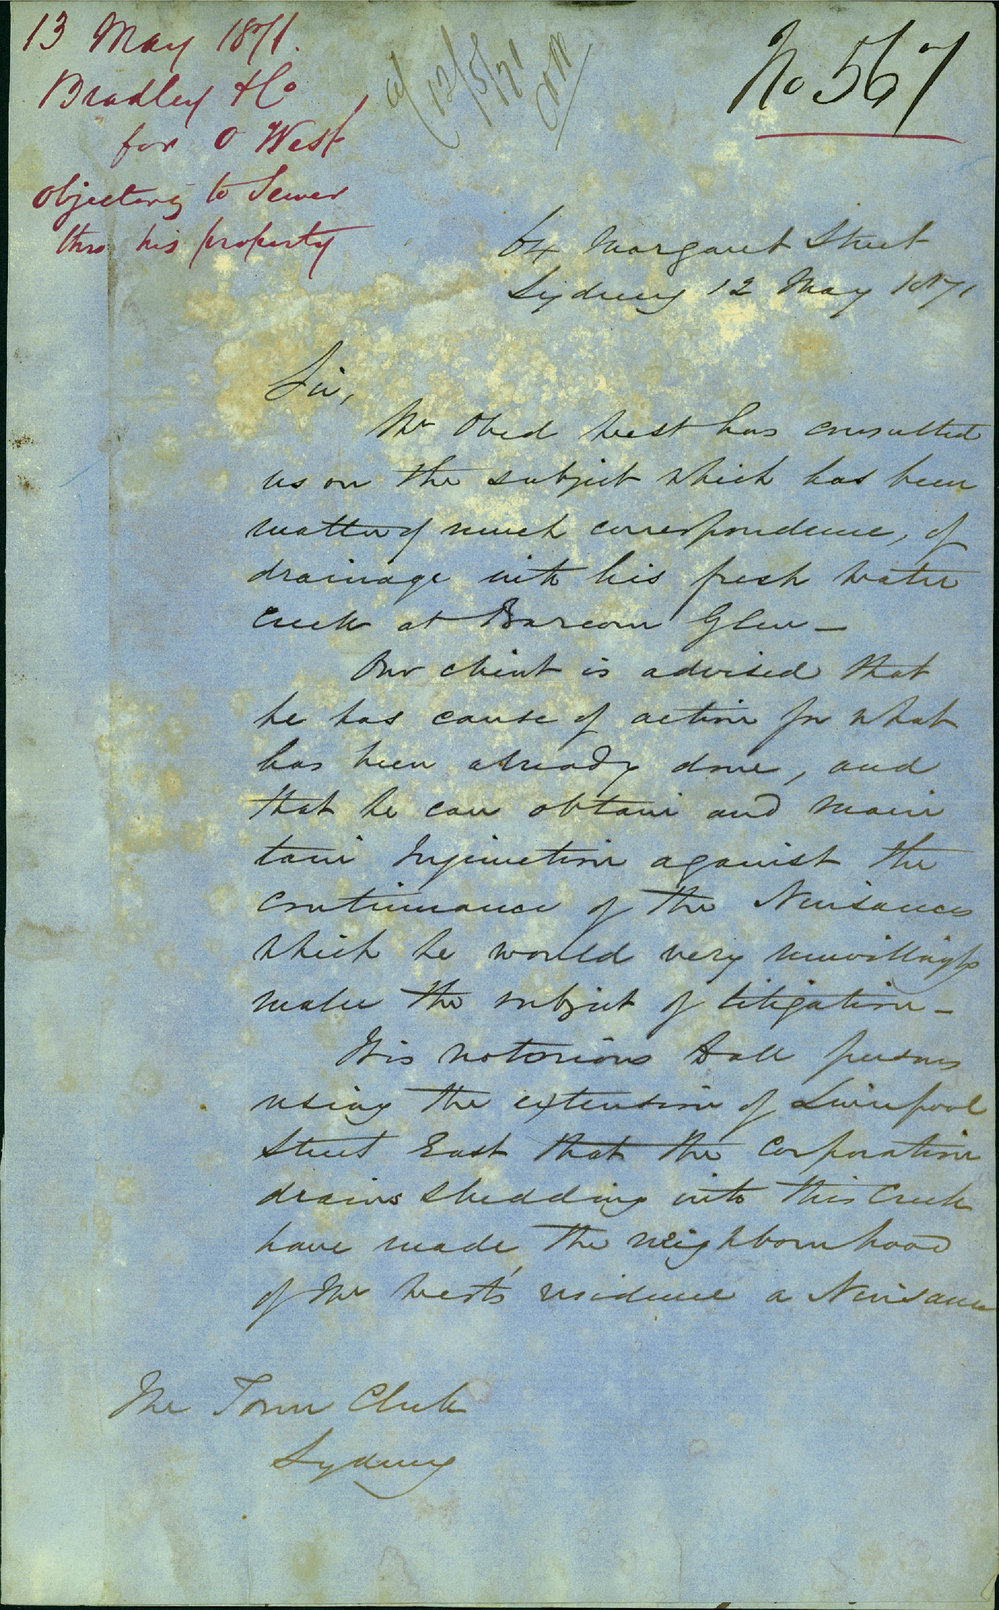 13 May 1871.
Bradley & Co
for O West,
objecting to Sewer
thro his property
12/5/71
No 567
64 Margaret Street
Sydney 12 May 1871
Sir,
Mr Obed West has consulted
us on the subject which has been
matter of much correspondence, of
drainage into his fresh water
Creek at Barcom Glen —
Our client is advised that
he has cause of action for what
has been already done, and
that he can obtain and main
tain Injunction against the
continuance of the Nuisances
which he would very unwillingly
make the subject of litigation —
It is notorious to all persons
using the extension of Liverpool
Street East that the Corporation
drains shedding into this Creek
have made the neighbourhood
of Mr West's residence a Nuisance
The Town Clerk
Sydney